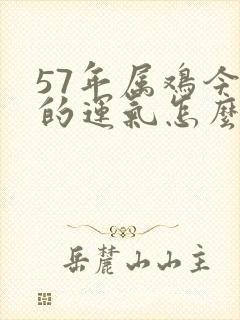 57年属鸡今
的運氣怎麽
岳麓山山主